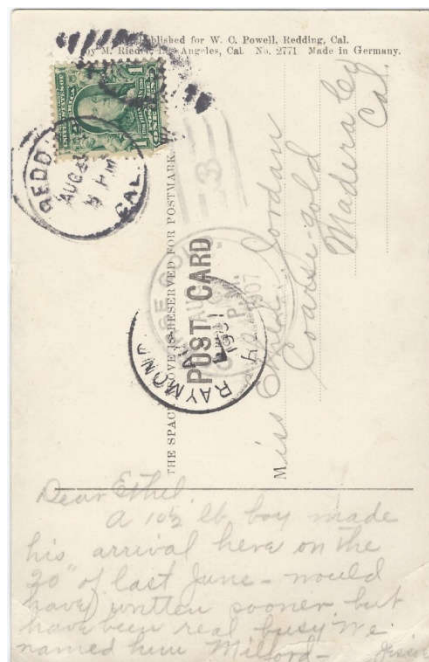 Published for W. C. Powell, Redding, Cal.
by M. Rieder, Los Angeles, Cal. No. 2771 Made in Germany.
REDD
AUG
PM
CAL.
THE SPACE ABOVE IS RESERVED FOR POSTMARK.
POST CARD
RAYMOND
1907
Miss Ethel Jordan
Coarse-gold
Madera Co
Cal.
Dear Ethel
A 10½ lb boy made
his arrival here on the
20" of last June - would
have written sooner but
have been real busy We
named him Milford-